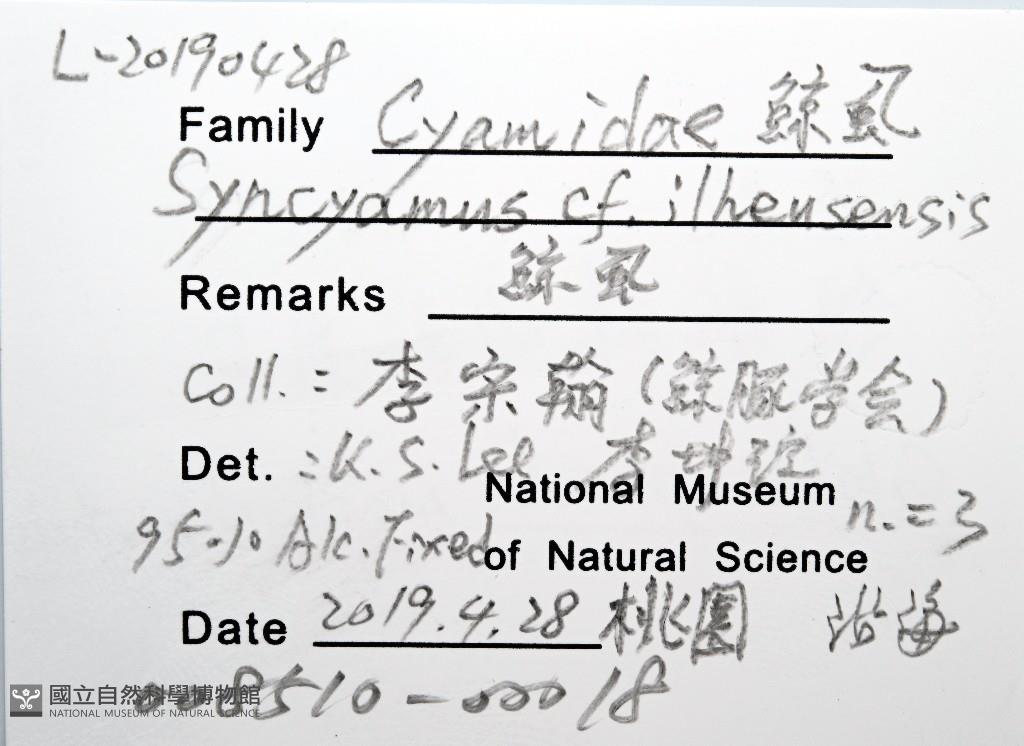 L-20190428
Family Cyamidae 鯨虱
Syncyamus cf. ilheusensis
Remarks 鯨虱
Coll.: 李宗翰(鯨豚学会)
Det. : K. S. Lee 李坤瑄
National Museum n.=3
95% Alc. Fixed of Natural Science
Date 2019.4.28 桃園 沿海
008510-00018
國立自然科學博物館
NATIONAL MUSEUM OF NATURAL SCIENCE